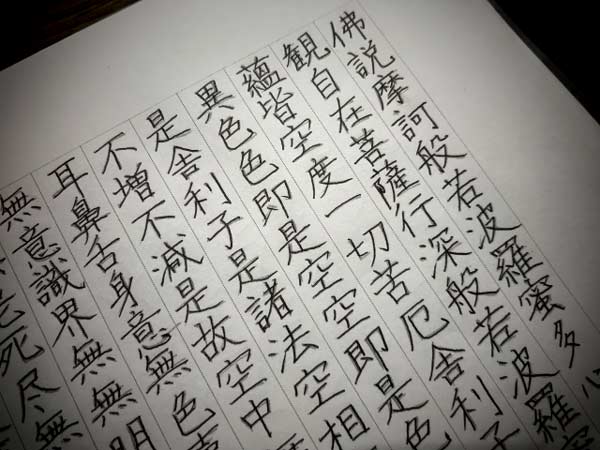 佛説摩訶般若波羅蜜多心
観自在菩薩行深般若波羅
蘊皆空度一切苦厄舎利子
異色色即是空空即是色
是舎利子是諸法空相
不増不減是故空中
耳鼻舌身意無色
無意識界無無明
老死尽無